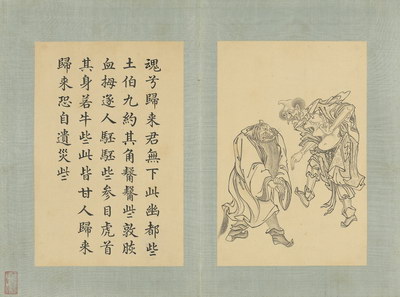 魂兮歸來君無下此幽都些
土伯九約其角觺觺些敦脄
血拇逐人駓駓些參目虎首
其身若牛些此皆甘人歸來
歸來恐自遺災些